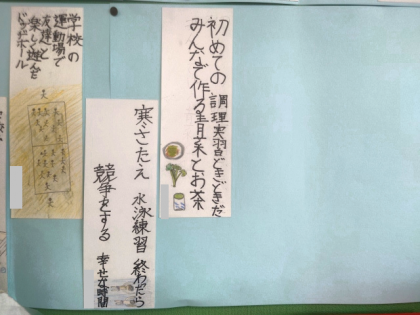 初めての 調理実習どきどきだ
みんなで作る青菜とお茶
寒さたえ 水泳練習 終わったら
競争をする 幸せな時間
学校の
運動場で
友達と
楽しく遊んだ
ドッヂボール